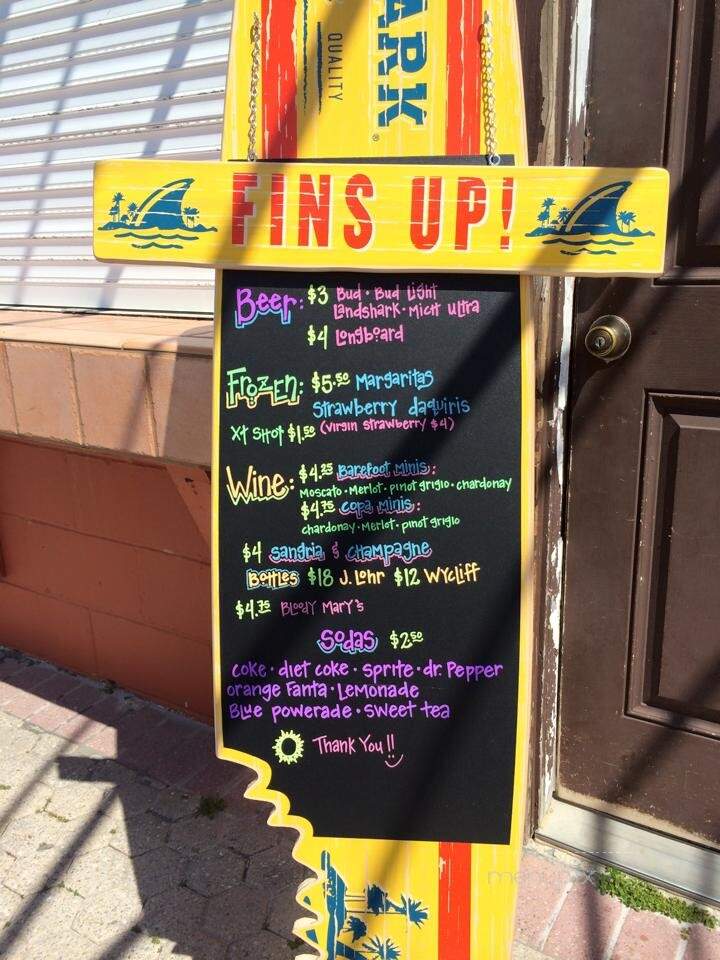 ARK®
QUALITY
FINS UP!
Beer: $3 Bud • Bud Light
Landshark • Mich Ultra
$4 Longboard
Frozen: $5.50 Margaritas
Strawberry daquiris
Xt Shot $1.50 (virgin strawberry $4)
Wine: $4.25 Barefoot Minis:
Moscato • Merlot • pinot grigio • chardonay
$4.75 Copa Minis:
chardonay • Merlot • pinot grigio
$4 sangria & champagne
Bottles $18 J. Lohr $12 Wycliff
$4.75 Bloody Mary's
Sodas $2.50
coke • diet coke • sprite • dr. Pepper
orange Fanta • Lemonade
Blue powerade • sweet tea
Thank You!!